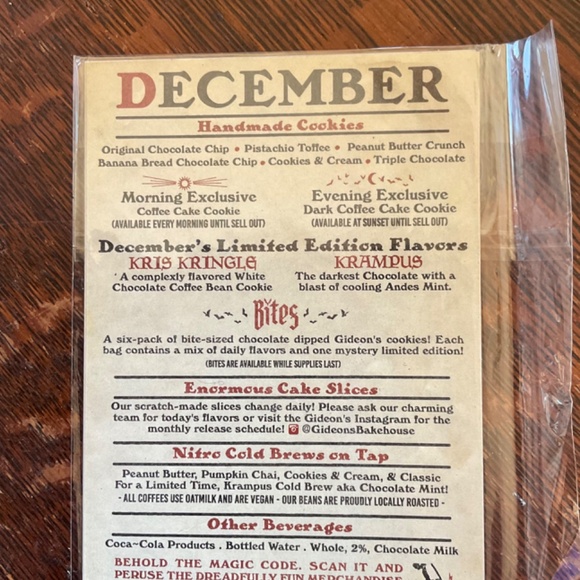 DECEMBER
Handmade Cookies
Original Chocolate Chip • Pistachio Toffee • Peanut Butter Crunch
Banana Bread Chocolate Chip • Cookies & Cream • Triple Chocolate
Morning Exclusive
Coffee Cake Cookie
(AVAILABLE EVERY MORNING UNTIL SELL OUT)
Evening Exclusive
Dark Coffee Cake Cookie
(AVAILABLE AT SUNSET UNTIL SELL OUT)
December's Limited Edition Flavors
KRIS KRINGLE
A complexly flavored White
Chocolate Coffee Bean Cookie
KRAMPUS
The darkest Chocolate with a
blast of cooling Andes Mint.
Bites
A six-pack of bite-sized chocolate dipped Gideon's cookies! Each
bag contains a mix of daily flavors and one mystery limited edition!
(BITES ARE AVAILABLE WHILE SUPPLIES LAST)
Enormous Cake Slices
Our scratch-made slices change daily! Please ask our charming
team for today's flavors or visit the Gideon's Instagram for the
monthly release schedule! @GideonsBakehouse
Nitro Cold Brews on Tap
Peanut Butter, Pumpkin Chai, Cookies & Cream, & Classic
For a Limited Time, Krampus Cold Brew aka Chocolate Mint!
- ALL COFFEES USE OATMILK AND ARE VEGAN - OUR BEANS ARE PROUDLY LOCALLY ROASTED -
Other Beverages
Coca~Cola Products . Bottled Water . Whole, 2%, Chocolate Milk
BEHOLD THE MAGIC CODE. SCAN IT AND
PERUSE THE DREADFULLY FUN MERCHANDISE